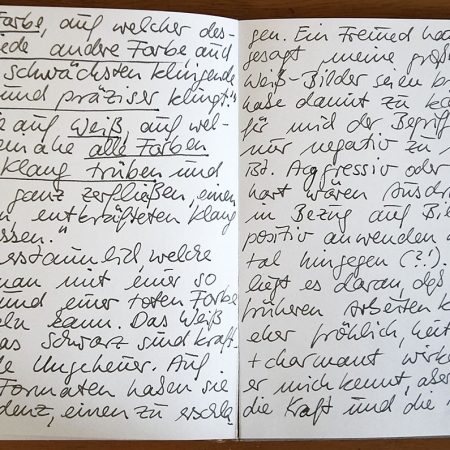 Farbe, auf welcher des-
jede andere Farbe, auch
schwächsten klingende
und präziser klingt."
auf Weiß, auf wel-
alle Farben
Klang trüben und
ganz zerfließen, einen
entkräfteten Klang
ssen."
erstaunlich, welche
man mit einer so
und einer toten Farbe
eln kann. Das Weiß
as Schwarz sind kraft
le Ungeheuer. Auf
Formaten haben sie
denz, einen zu erschla
gen. Ein Freund hat
gesagt, meine groß
Weiß-Bilder seien br
habe damit zu kä
für mich der Begriff
nur negativ zu
ist. Aggressiv oder
hart wären Ausdr
in Bezug auf Bil
positiv anwenden
tal hingegen (?!).
liegt es daran, daß
früheren Arbeiten
eher fröhlich, heit
+ charmant wirke
er mich kennt, aber
die Kraft und die